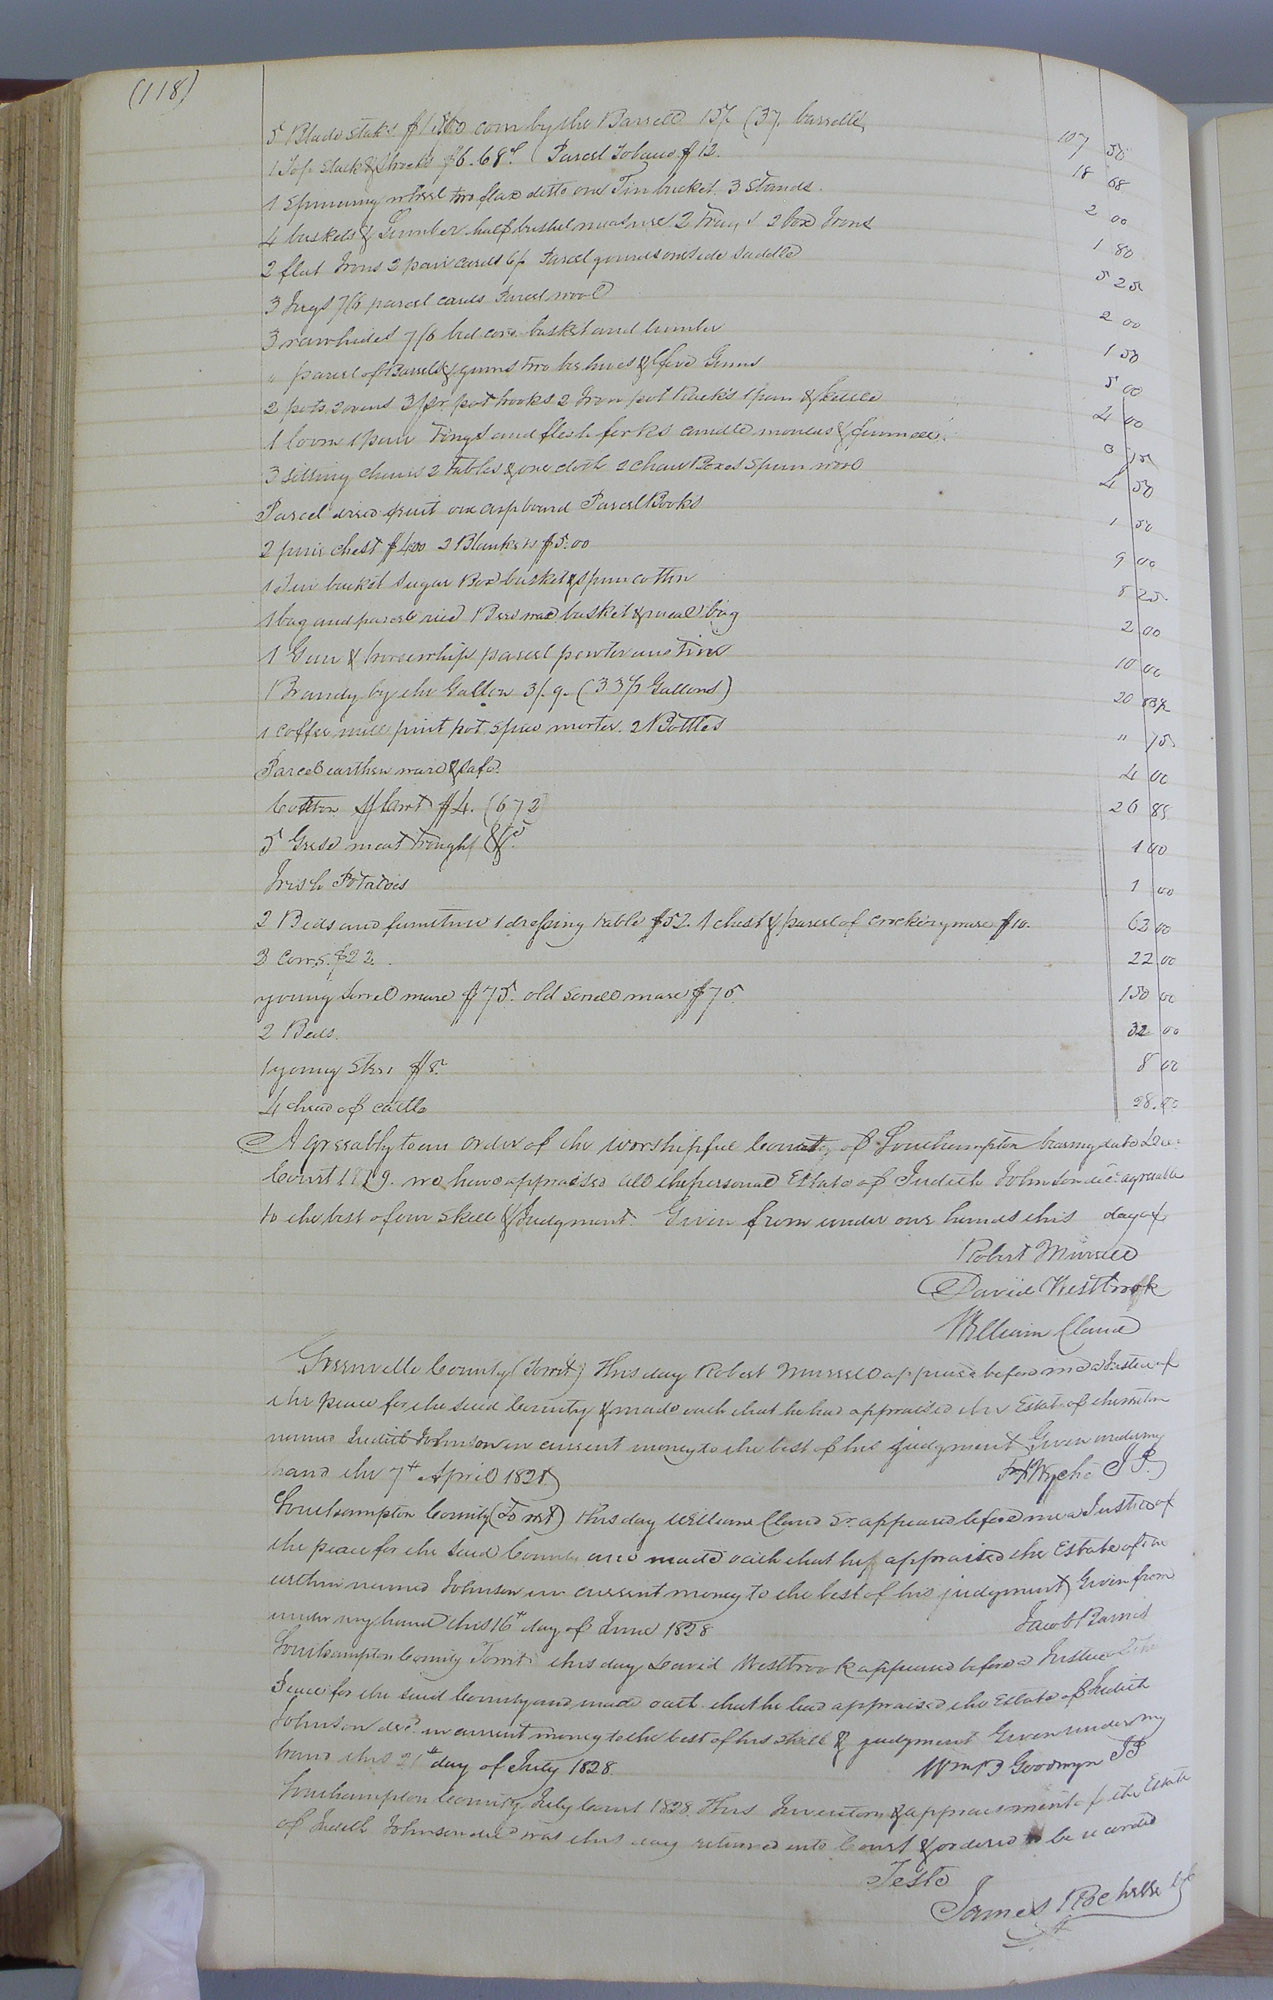 (118)
5 Blade staks $15.00 corn by the Barrell 15/ (37. barrells) 107 50
1 Top stack & Shocks $6.68 Parcel Tobacco $12. 18 68
1 spinning wheel two flax ditto one Tin bucket. 3 Stands. 2 00
4 baskets & Lumber half bushel measure 2 Trays 2 box Irons 1 80
2 flat Irons 2 pair cards 6/ Parcel gourds one side Saddle 5 25
3 Jugs 7/6 parcel cards Parcel wool 2 00
3 rawhides 7/6 bed cord basket and lumber 1 50
" parcel of Barrels & gums two bee hives & five Gums 5 00
2 pots 2 ovens 3 pr. pot hooks 2 Iron pot Racks 1 pan & kettle 4 00
1 loom 1 pair Tongs and flesh forks candle moulds & funnell. 3
3 sitting chairs 2 tables & one cloth 2 chaw Boxes Spun wool 4 50
Parcel dried fruit one cupboard Parcel Books 1 50
2 pine chest $4.00 2 Blankets $5.00 9 00
1 Tin bucket Sugar Box basket & spun cotton 8 25
1 bag and parcel ried Bees wax basket & meal bag 2 00
1 Gun & horsewhip parcel pewter and Tins 10 00
Brandy by the Gallon 3/.9. (33⅓ Gallons) 20
1 coffee mill pint pot spice morter. 2 Bottles " 75
Parcel earthen ware & safe. 4 00
Cotton $4. (672) 26 88
5 Greese meat troughs &c. 1 00
Irish Potatoes 1 00
2 Beds and furniture 1 dressing table $52. 1 chest & parcel of crockery ware $10. 62 00
3 Cows. $22. 22 00
young Sorrel mare $75. old Sorrell mare $75. 150 00
2 Beds. 32 00
1 young Steer $8. 8 00
4 head of cattle 28.00
Agreeably to an order of the worshipful County of Southampton bearing date
Court 1819. we have appraised all the personal Estate of Judith Johnson dec. agreeable
to the best of our Skill & Judgment. Given from under our hands this day of
Robert Murrell
David Westbrook
William Claud
Greenville County (Towit) This day Robert Murrell appeared before me a Justice of
the peace for the said County & made oath that he had appraised the Estate of the within
named Judith Johnson in current money to the best of his judgment Given under my
hand the 7th April 1821) Wyche J P.)
Southampton County (To wit) this day William Claud Sr. appeared before me a Justice of
the peace for the said County and made oath that he appraised the Estate of the
within named Johnson in current money to the best of his judgment, Given from
under my hand this 16th day of June 1828 Jacob Barnes
Southampton County Towit this day David Westbrook appeared before a Justice of the
Peace for the said County and made oath that he had appraised the Estate of Judith
Johnson decd. in current money to the best of his skill & judgment Given under my
hand this 21st day of July 1828. Wm B Goodwyn J P
Southampton County July Court 1828. This Inventory & appraisment of the Estate
of Judith Johnson decd was this day returned into Court & ordered to be recorded
Teste
James Rochelle